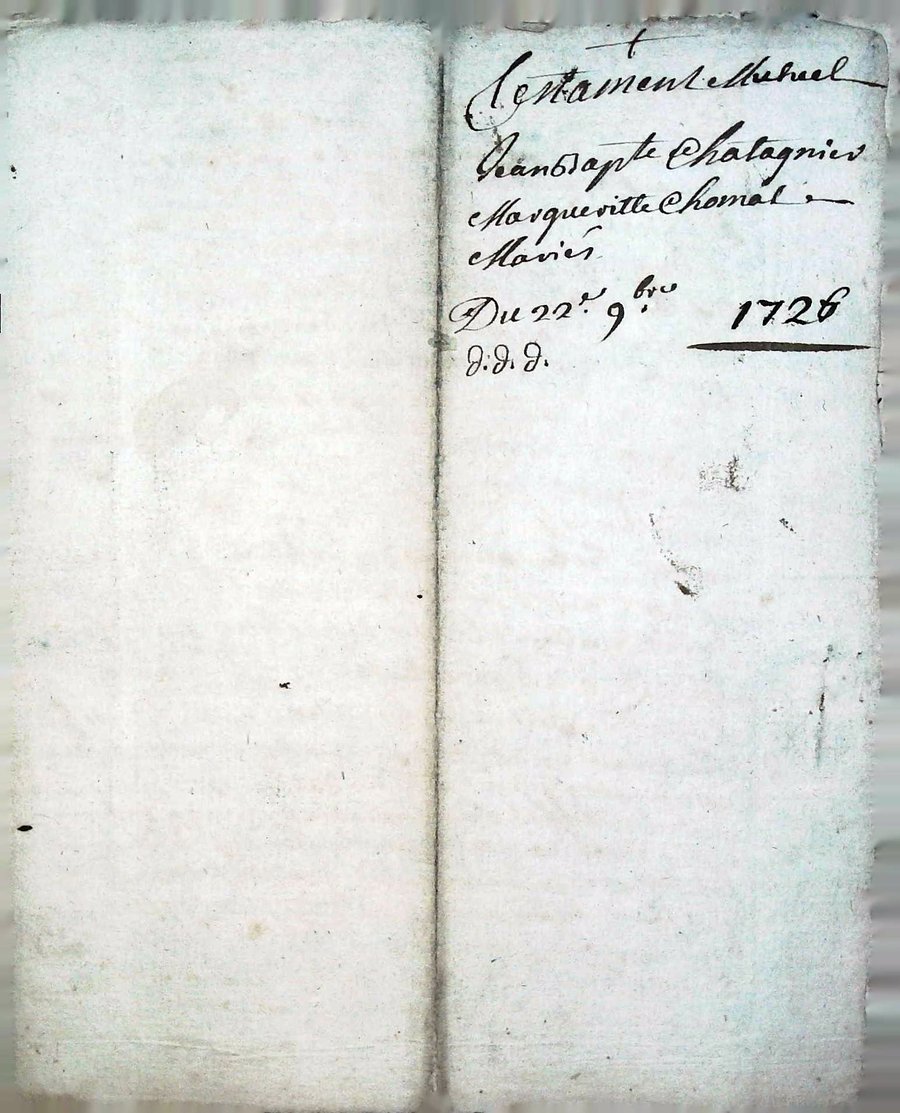 +
Testament Mutuel
Jean Bapte Chatagnier
Margueritte Chomat
Mariés
Du 22e. 9.bre 1726
d. d. d.